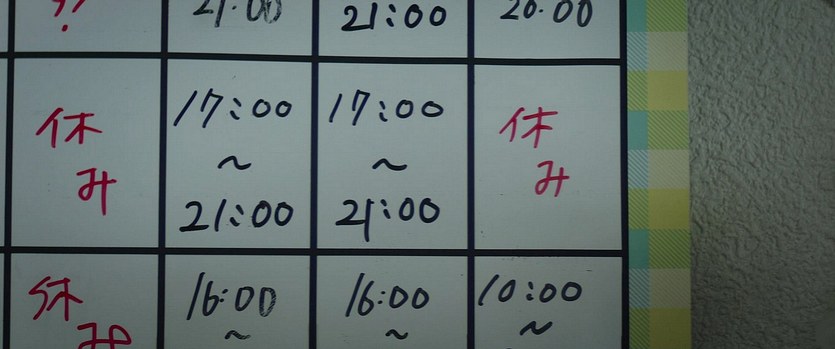 ?? 21:00 21:00 20:00
休み 17:00～21:00 17:00～21:00 休み
休み 16:00～ 16:00～ 10:00～